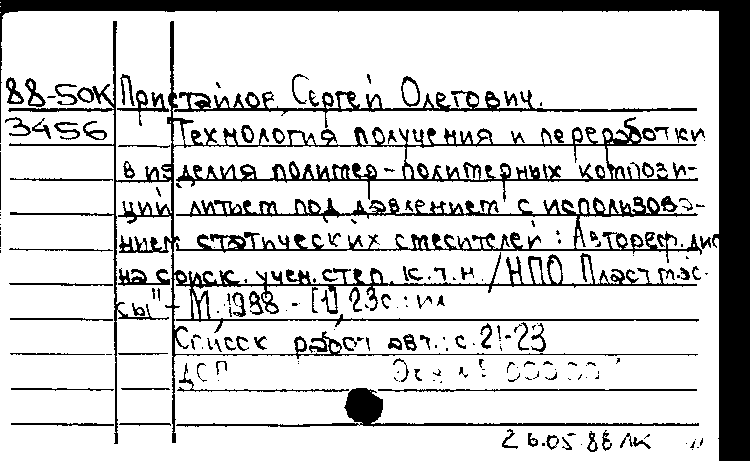 88-50К Пристайлов Сергей Олегович.
3456 Технология получения и переработки
в изделия полимер-полимерных компози-
ций литьем под давлением с использова-
нием статических смесителей: Автореф. дис
на соиск. учен. степ. к.т.н. / НПО Пластмас-
сы" - М., 1988. - [1], 23с.: ил
Список работ авт.: с. 21-23
ДСП
26.05.88